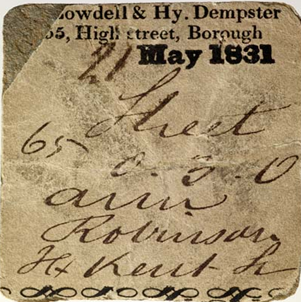 owdell & Hy. Dempster
65, High street, Borough
21 May 1831
Sheet
65
0. 3. 0
ann
Robinson
Kent St